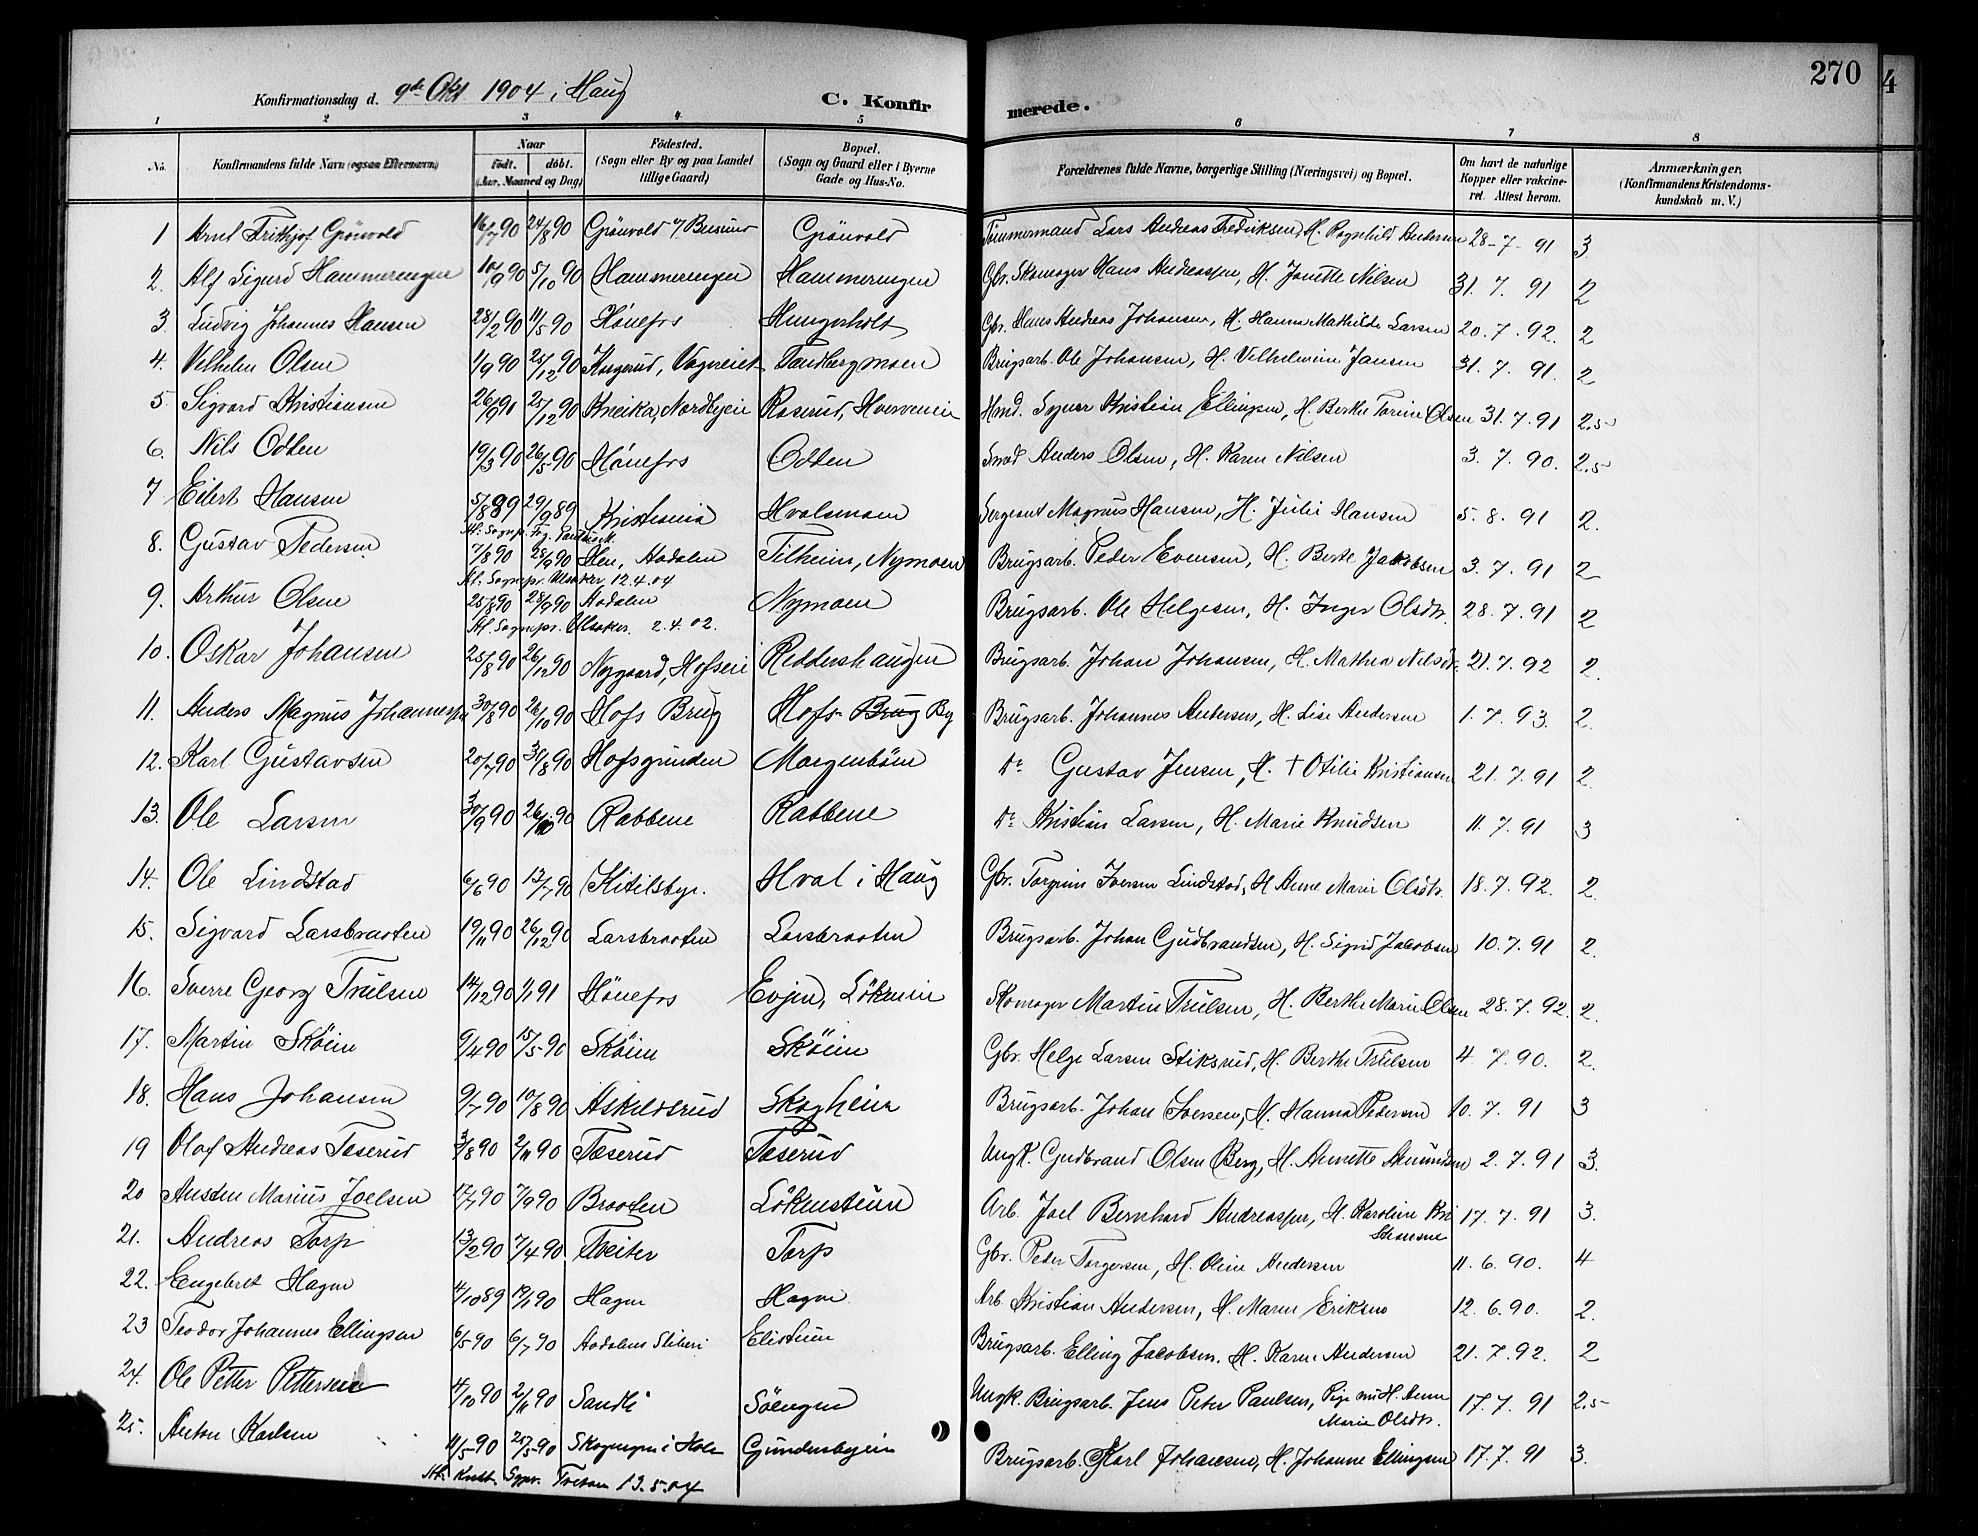 270
4
Konfirmationsdag d. 9de Okt 1904 i Haug
C. Konfirmerede.
1 2 3 4 5 6 7 8
No. Konfirmandens fulde Navn (ogsaa Efternavn) Naar født. døbt. (Aar, Maaned og Dag) Fødested. (Sogn eller By og paa Landet tillige Gaard) Bopæl. (Sogn og Gaard eller i Byerne Gade og Hus-No. Forældrenes fulde Navne, borgerlige Stilling (Næringsvei) og Bopæl. Om havt de naturlige Kopper eller vakcineret. Attest herom. Anmærkninger. (Konfirmandens Kristendomskundskab m. V.)
1 Arnt Frithjof Grönvold 16/7 90 24/8 90 Grönvold Grönvold Tömmermand Lars Andreas Fredriksen, H. Ragnhild Andersen 28-7-91 3
2. Alf Sigurd Hammerengen 10/9 90 5/10 90 Hammerengen Hammerengen Gbr. Skomager Hans Andreassen, H. Janette Nilsen 31. 7. 91 2
3. Ludvig Johannes Hansen 28/2 90 11/5 90 Hönefos Hungerholt Gbr. Hans Andreas Johansen, H. Hanna Mathilde Larsen 20. 7. 92. 2
4. Vilhelm Olsen 1/9 90 25/12 90 Tandbergmoen Brugsarb. Ole Johansen, H. Vilhelmine Jansen 31. 7. 91. 2
5 Sigvard Kristiansen 26/9 90 25/12 90 Kneika, Nordbyeie Roserud, Hvervenein Hmd. Kristian Ellingsen, H. Berthe Torine Olsen 31. 7. 91 2,5
6. Nils Odden 19/3 90 26/5 90 Hönefos Odden Smed Anders Olsen, H. Karen Nilsen 3. 7. 90. 2,5
7 Eilert Hansen 5/8 89 29/9 89 Kristiania Hvalsmoen Sergeant Magnus Hansen, H. Julie Hansen 5. 8. 91 2.
8. Gustav Pedersen 7/8 90 28/9 90 Hen, Aadalen Tilheim, Nymoen Brugsarb. Peder Evensen, H. Berte Jakobsen 3. 7. 91 2
At. Sognepr. Ulsaker 12.4.04
9. Arthur Olsen 25/8 90 28/9 90 Aadalen Nymoen Brugsarb. Ole Helgesen, H. Inger Olsdtr. 28. 7. 91 2
At. Sognepr. Ulsaker. 2.4.02.
10. Oskar Johansen 25/8 90 26/12 90 Nygaard, Hofseie Reddershaugen Brugsarb. Johan Johansen, H. Mathea Nilsdtr. 21. 7. 92 2.
11. Anders Magnus Johannessen 30/8 90 26/10 90 Hofs Brug Hofs Brug By Brugsarb. Johannes Andersen, H. Lise Andersen 1. 7. 93. 2.
12. Karl Gustavsen 20/7 90 31/8 90 Hofsgrunden Morgenböen Do Gustav Jensen, H. † Otilie Kristiansen 21. 7. 91 2.
13. Ole Larsen 30/9 90 26/10 90 Rabbene Rabbene Do Kristian Larsen, H. Marie Knudsen 11. 7. 91 3
14. Ole Lindstad 6/6 90 13/7 90 Kitilsbye. Hval i Haug Gbr. Torgrim Iversen Lindstad, H. Anne Marie Olsdtr. 18. 7. 92. 2
15. Sigvard Larsbraaten 19/11 90 26/12 90 Larsbraaten Larsbraaten Brugsarb. Johan Gudbrandsen, H. Sigrid Jacobsen 10. 7. 91 2.
16. Sverre Georg Trulsen 14/12 90 1/1 91 Hönefos Evjen, Lökeneie Skomager Martin Trulsen, H. Berthe Marie Olsen 28. 7. 92. 2.
17. Martin Sköien 9/4 90 15/5 90 Sköien Sköien Gbr. Helge Larsen Stiksrud, H. Berthe Trulsen 4. 7. 90. 2.
18. Hans Johansen 9/7 90 10/8 90 Askildsrud Skogheim Brugsarb. Johan Iversen, H. Hanna Pedersen 10. 7. 91 3
19 Olaf Andreas Tæserud 3/8 90 2/11 90 Tæserud Tæserud Ungk. Gudbrand Olsen Berg, H. Annette Amundsen 2. 7. 91 3.
20 Austen Marius Joelsen 17/7 90 7/9 90 Braaten Lökensteien Arb. Joel Bernhard Andreassen, H. Karoline Kristiansen 17. 7. 91 3.
21. Andreas Torp 13/2 90 7/4 90 Torp Gbr. Peder Torgersen, H. Oline Andersen 11. 6. 90. 4
22. Engebret Hagen 11/10 89 19/1 90 Hagen Hagen Arb. Kristian Andersen, H. Maren Eriksen 12. 6. 90. 2.
23 Teodor Johannes Ellingsen 6/5 90 6/7 90 Aadalens Sliberi Brugsarb. Elling Jacobsen, H. Karen Andersen 21. 7. 92. 2
24. Ole Petter Pettersen 11/10 90 2/11 90 Sandli Söengen Ungk. Brugsarb. Jens Peter Paulsen, Pige nu H. Anne Marie Olsdtr. 17. 7. 91 2,5
25. Anton Karlsen 11/5 90 25/5 90 Skogengen i Hole Gundersbyeie Brugsarb. Karl Johansen, H. Johanne Ellingsen 17. 7. 91 3.
13.5.04